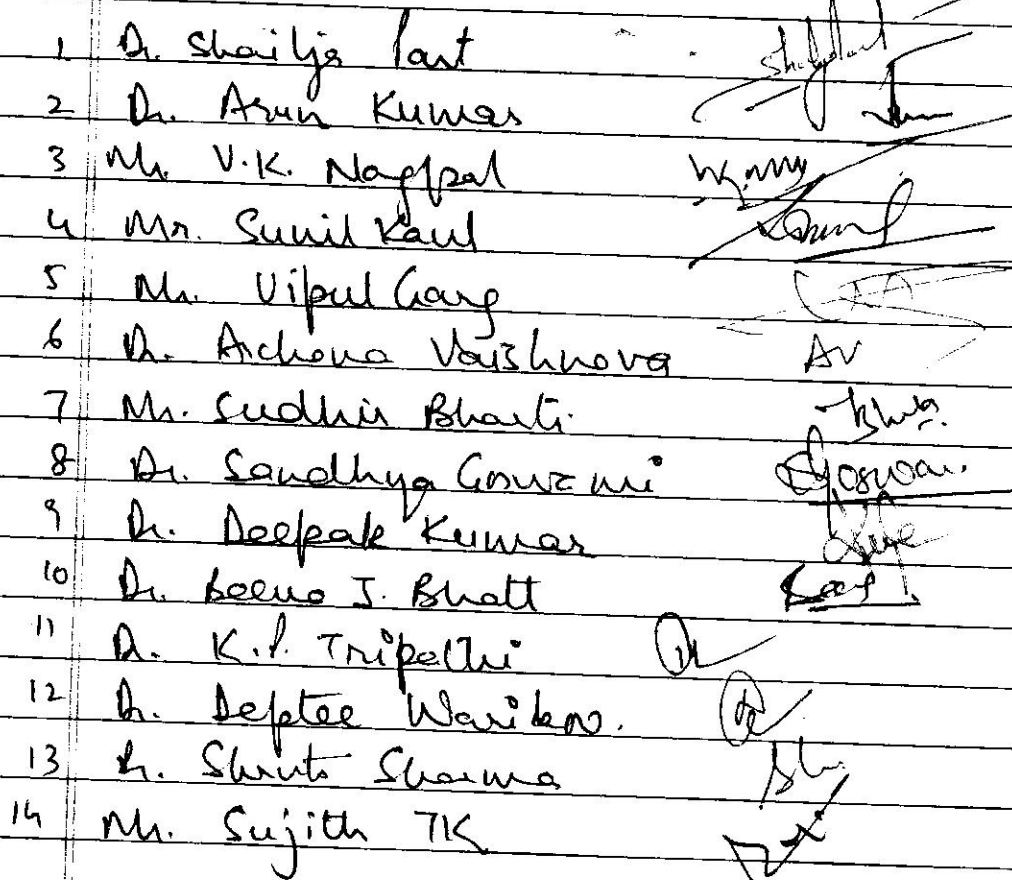 1 Dr. Shailja Pant
2 Dr. Arun Kumar
3 Mr. V.K. Nagpal
4 Mr. Sunil Kaul
5 Mr. Vipul Garg
6 Dr. Archana Vaishnava AV
7 Mr. Sudhir Bharti.
8 Dr. Sandhya Goswami
9 Dr. Deepak Kumar
10 Dr. Beena J. Bhatt
11 Dr. K.P. Tripathi
12 Dr. Deptee Warikoo.
13 Dr. Shruti Sharma
14 Mr. Sujith TK